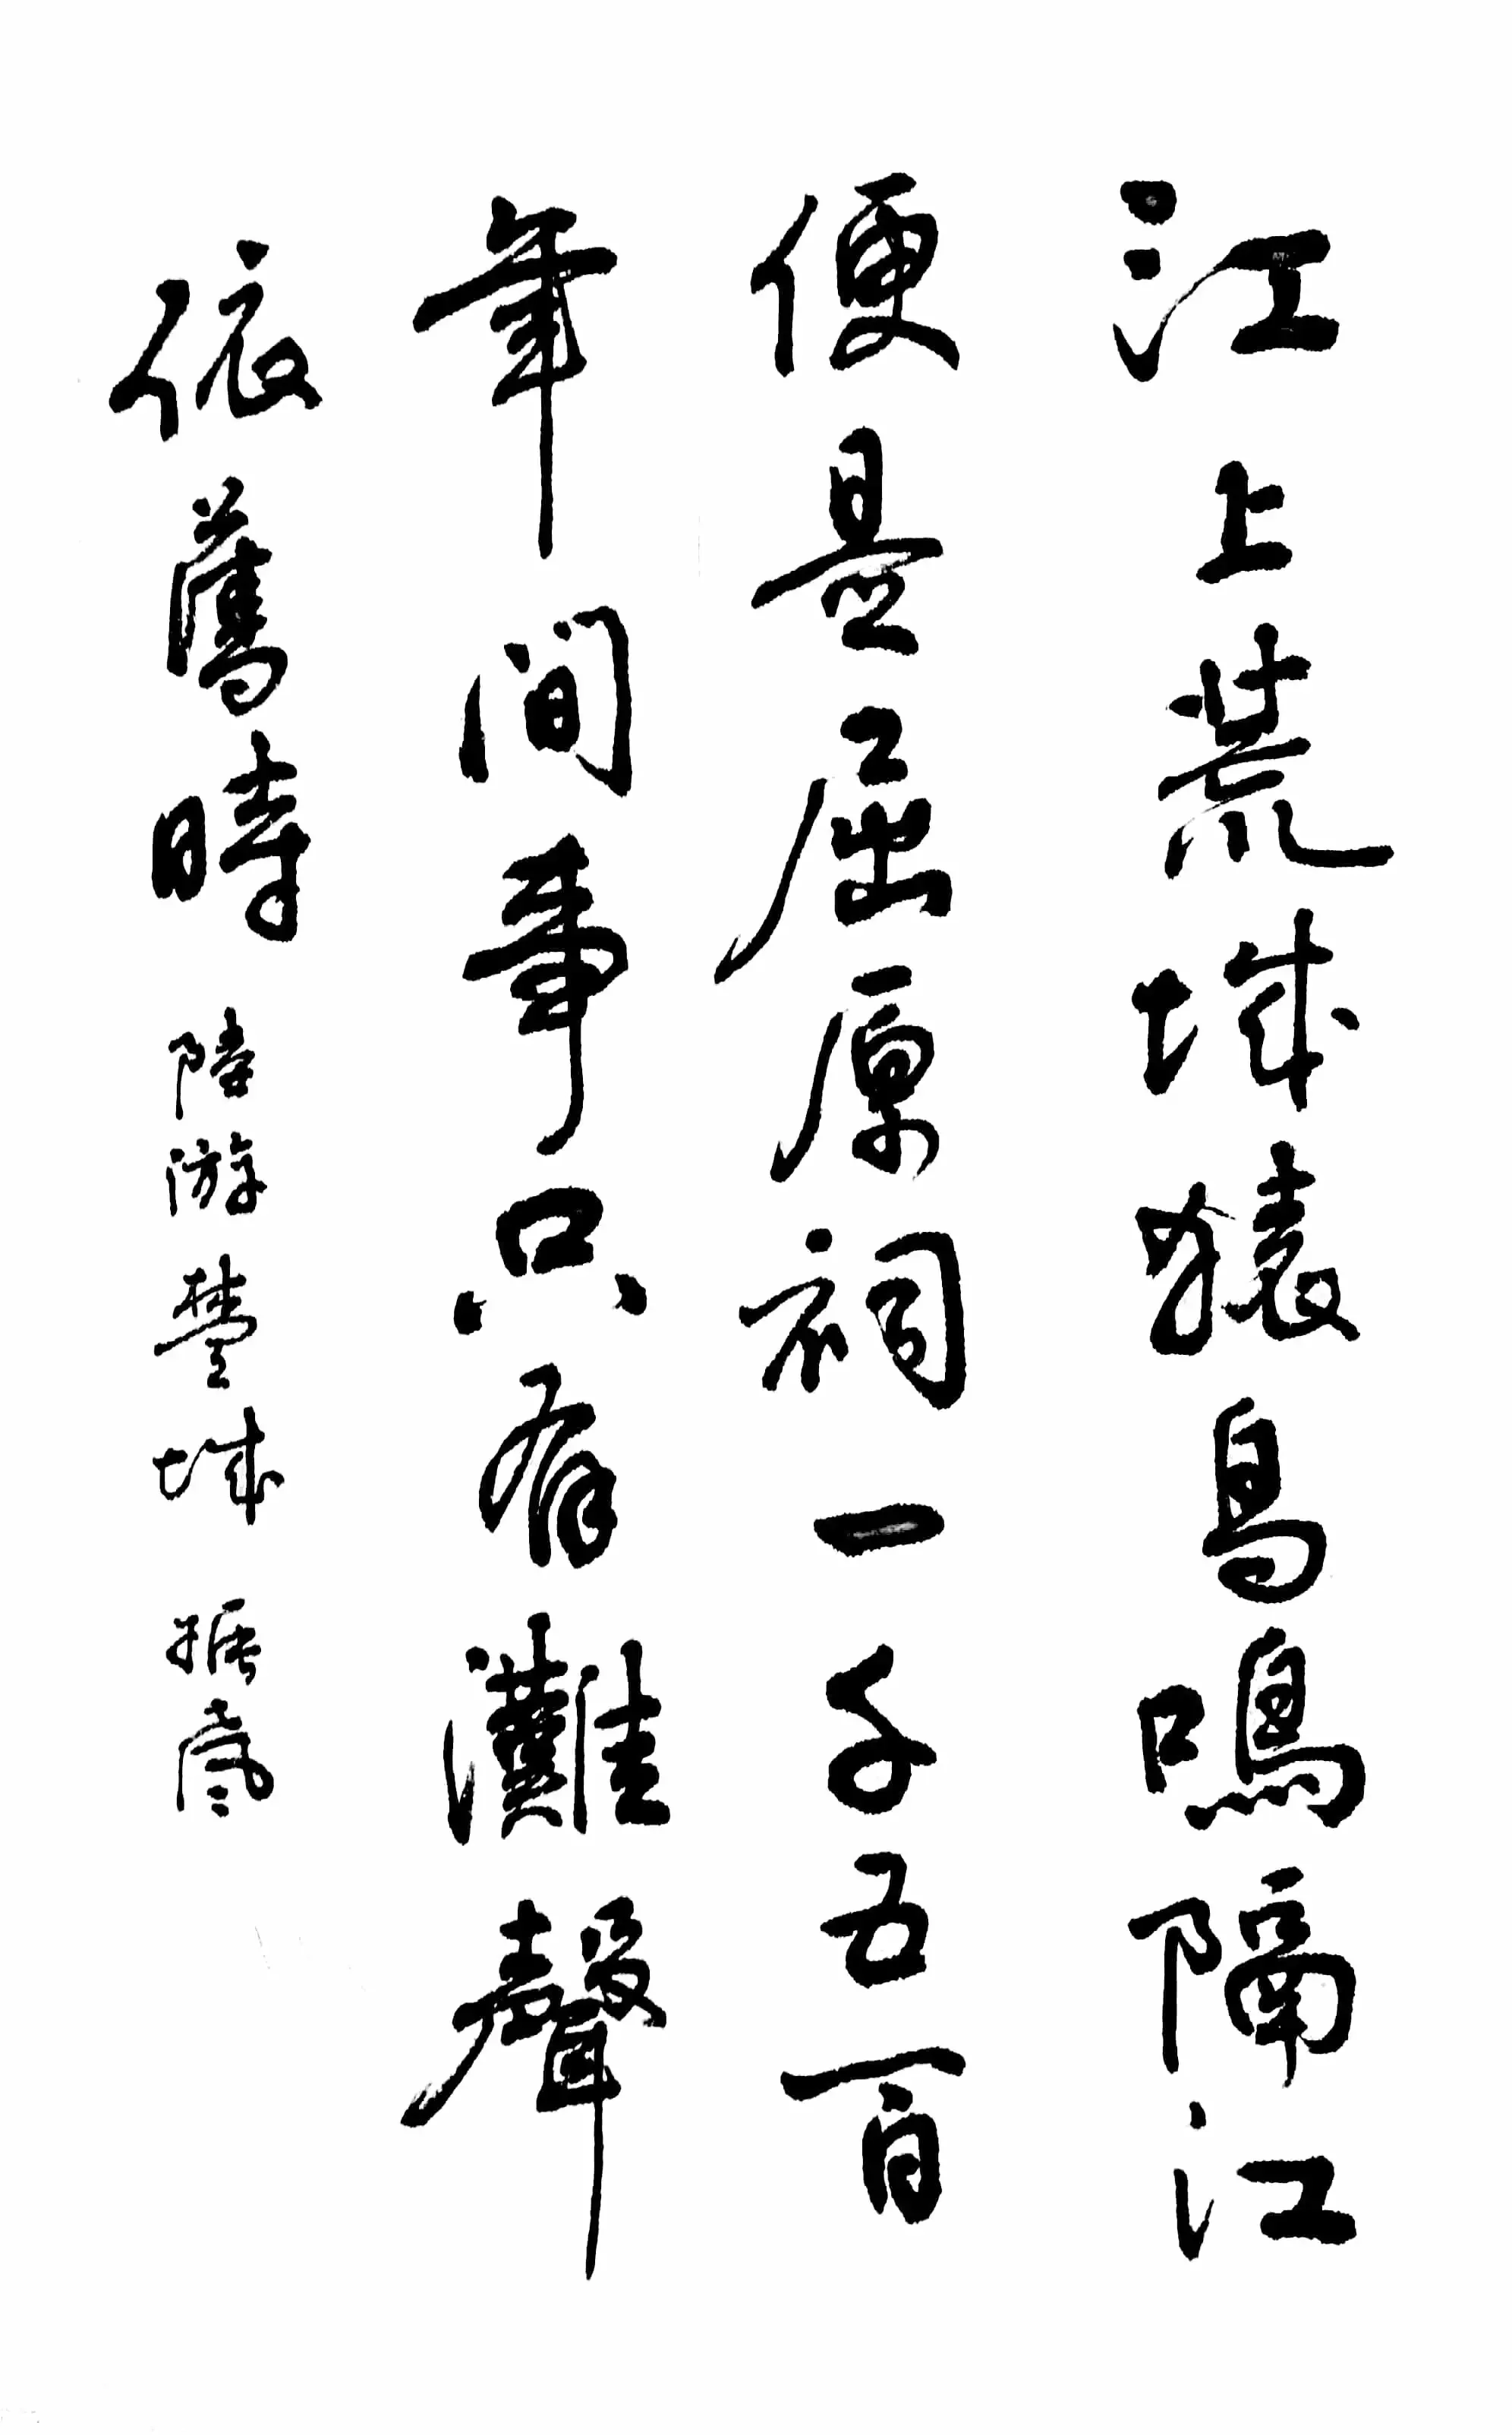 江上荒城猿鳥鳴隔江
便是屈原祠一千五百
年間事只有灘聲
依舊時 陸游楚城 振宇